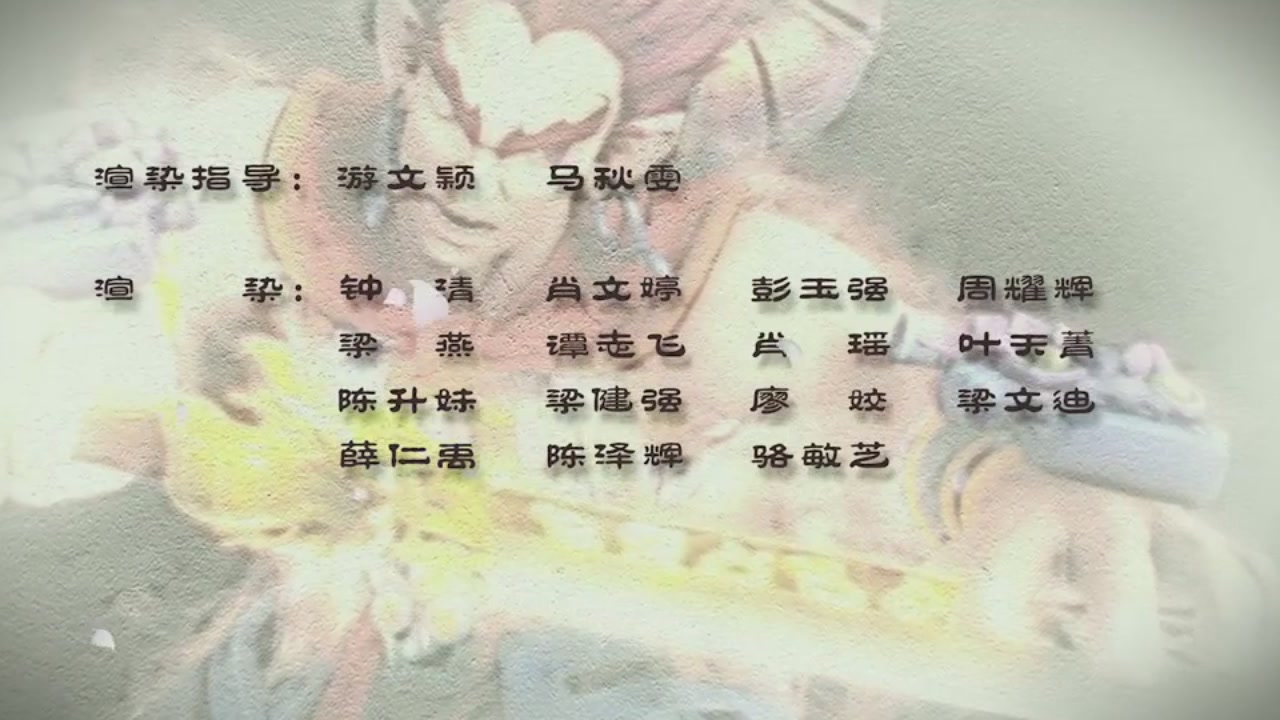 渲染指导：游文颖 马秋雯
渲 染：钟 清 肖文婷 彭玉强 周耀辉
梁 燕 谭志飞 肖 瑶 叶天菁
陈升妹 梁健强 廖 姣 梁文迪
薛仁禹 陈泽辉 骆敏芝